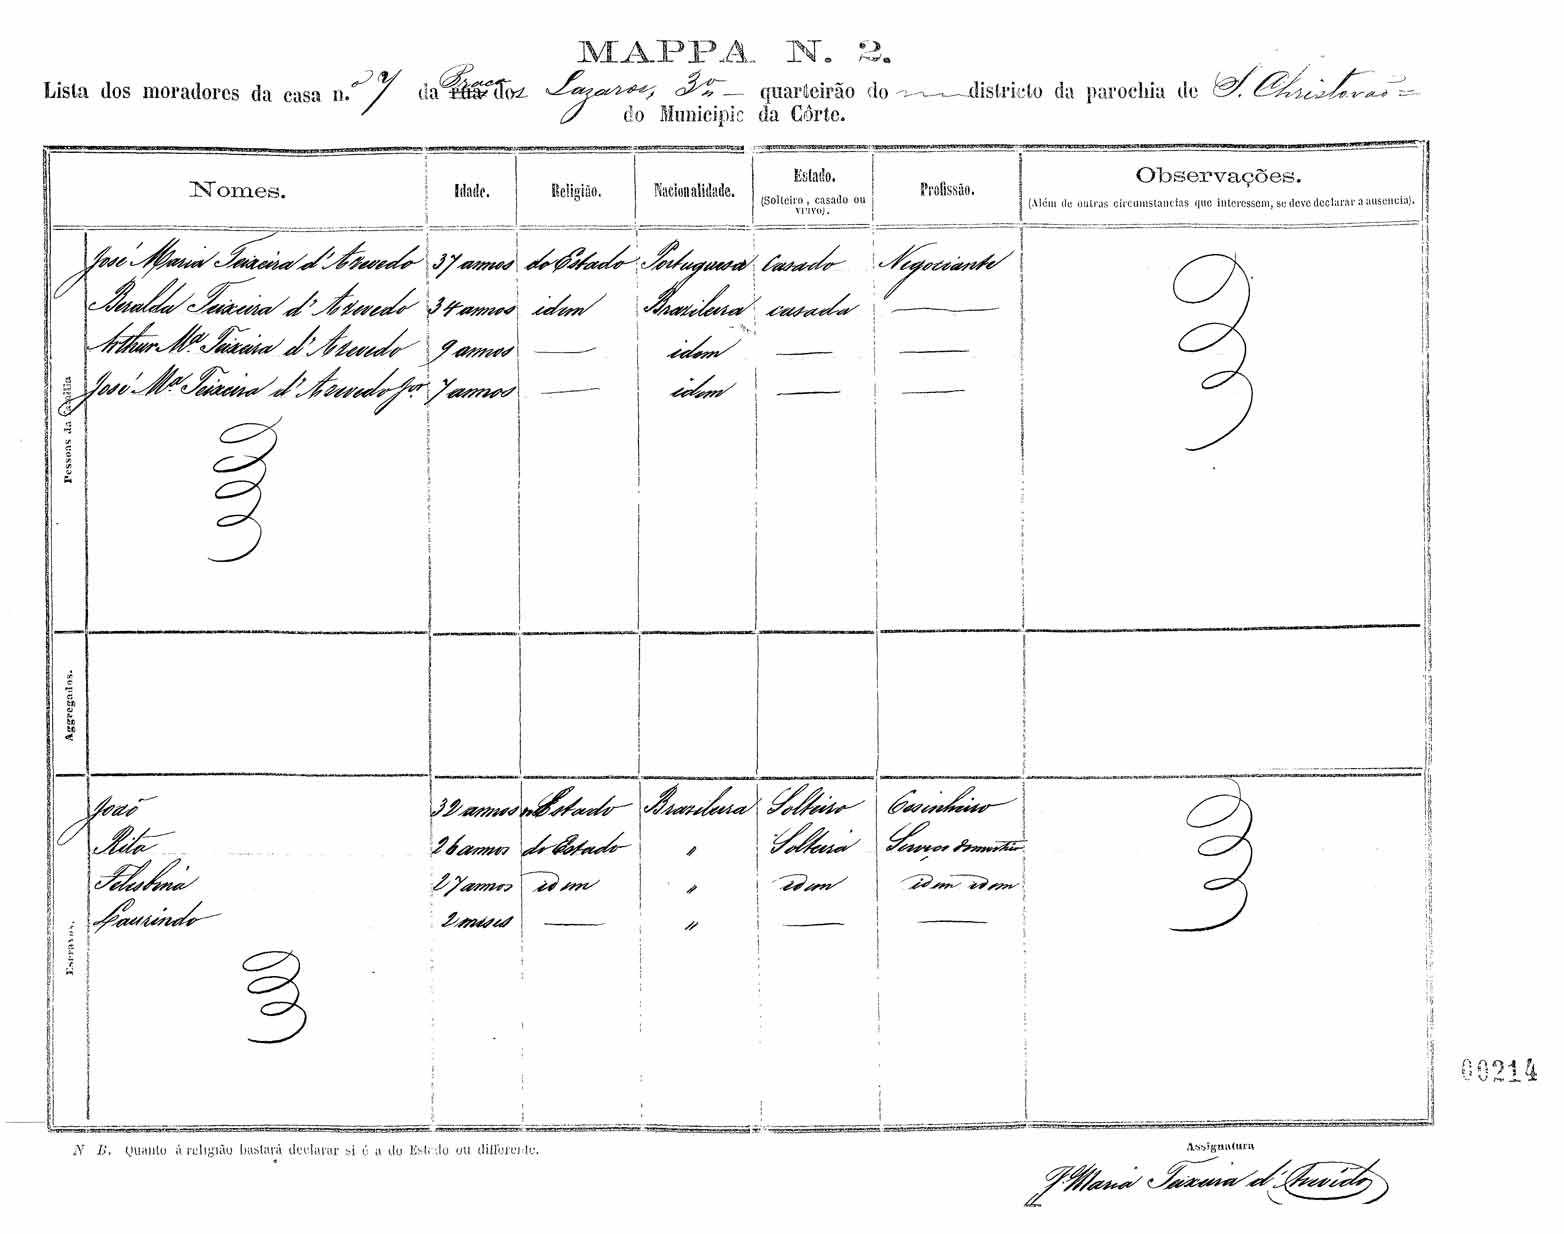 MAPPA N. 2.
Lista dos moradores da casa n.º 7 da Praça dos Lazaros, 3º quarteirão do districto da parochia de S. Christovão
do Municipio da Côrte.
Nomes. Idade. Religião. Nacionalidade. Estado. (Solteiro, casado ou viuvo). Profissão. Observações. (Além de outras circumstancias que interessem, se deve declarar a ausencia).
Pessoas da familia
José Maria Teixeira d'Azevedo 37 annos do Estado Portuguesa Casado Negociante
Beralda Teixeira d'Azevedo 34 annos idem Brazileira casada —
Arthur Mª Teixeira d'Azevedo 9 annos — idem — —
José Mª Teixeira d'Azevedo Jor 7 annos — idem — —
Aggregados.
Escravos.
João 32 annos Estado Brazileira Solteiro Cosinheiro
Rita 26 annos do Estado " Solteira Serviço domestico
Felisbina 27 annos idem " idem idem idem
Laurindo 2 meses — " — —
00214
N B. Quanto á religião bastará declarar si é a do Estado ou differente.
Assignatura
J. Maria Teixeira d'Azevedo